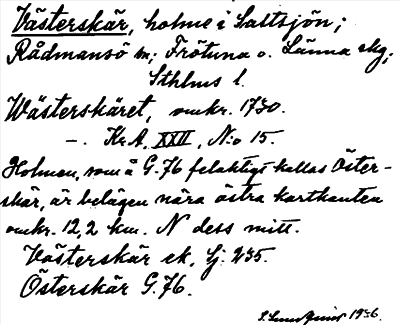 Västerskär, holme i Saltsjön;
Rådmansö sn; Frötuna o. Länna skg;
Sthlms l.
Wästerskäret, omkr. 1730.
—. Kr.A. XXII, N:o 15.
Holmen, som å G.76 felaktigt kallas Öster-
skär, är belägen nära östra kartkanten
omkr. 12,2 km. N dess mitt.
Västerskär ek. Sj. 235.
Österskär G.76.
1936.